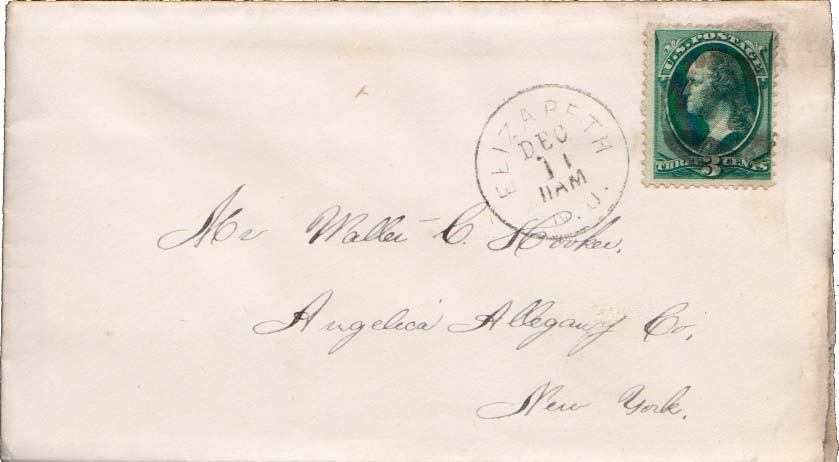 U.S. POSTAGE
THREE 3 CENTS
ELIZABETH
DEC
11
11AM
N.J.
Mr Walter C. Hooker.
Angelica Allegany Co.
New York.